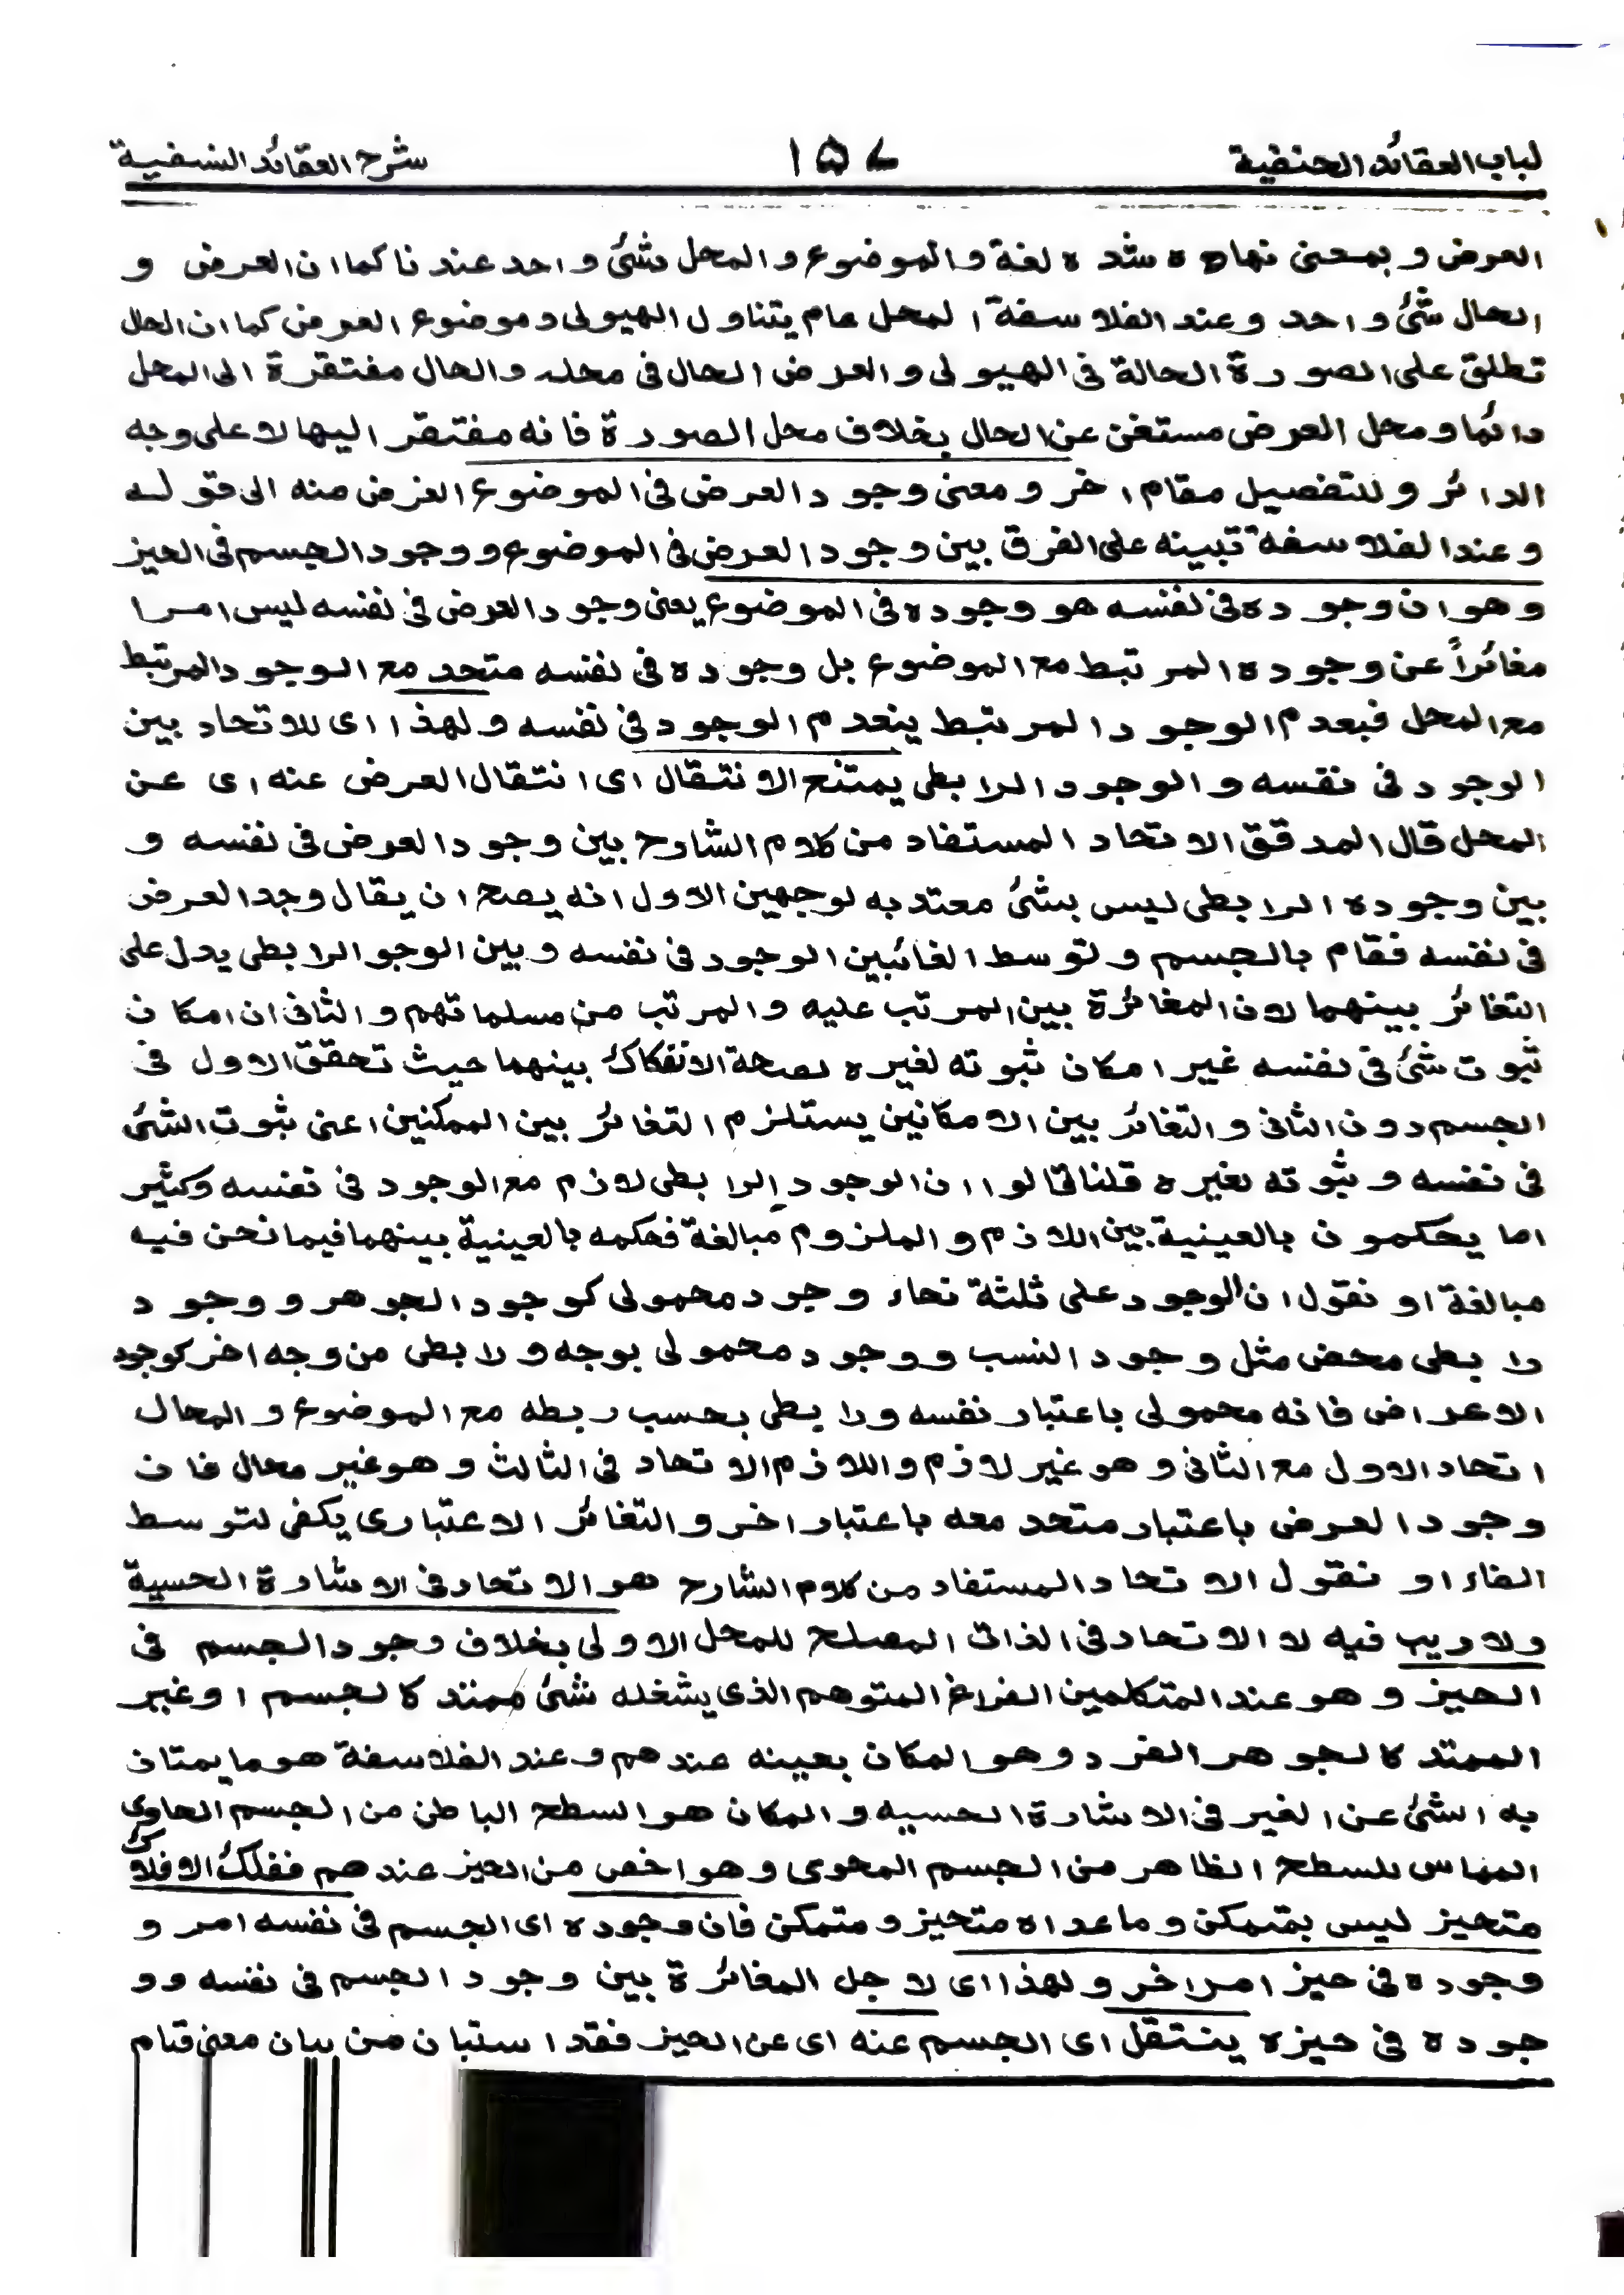 لباب العقائد الحنفية ١٥٧ شرح العقائد النسفية
العرض و بمعنى نهاه شده لغة و الموضوع و المحل شئ واحد عندنا كما ان العرض و
الحال شئ واحد وعند الفلاسفة المحل عام يتناول الهيولى و موضوع العرض كما ان الحال
تطلق على الصورة الحالة فى الهيولى و العرض الحال فى محله و الحال مفتقرة الى المحل
دائما و محل العرض مستغن عن الحال بخلاف محل الصورة فانه مفتقر اليها لا على وجه
الدائر و للتفصيل مقام اخر و معنى وجود العرض فى الموضوع الغرض منه الى قوله
و عند الفلاسفة تبينه على الفرق بين وجود العرض فى الموضوع و وجود الجسم فى الحيز
و هو ان وجوده فى نفسه هو وجوده فى الموضوع يعنى وجود العرض فى نفسه ليس امرا
مغائراً عن وجوده المرتبط مع الموضوع بل وجوده فى نفسه متحد مع الوجود المرتبط
مع المحل فبعدم الوجود المرتبط ينعدم الوجود فى نفسه و لهذا اى للاتحاد بين
الوجود فى نفسه و الوجود الرابطى يمتنع الانتقال اى انتقال العرض عنه اى عن
المحل قال المدقق الاتحاد المستفاد من كلام الشارح بين وجود العرض فى نفسه و
بين وجوده الرابطى ليس بشئ معتد به لوجهين الاول انه يصح ان يقال وجد العرض
فى نفسه فقام بالجسم و لتوسط الفائبين الوجود فى نفسه و بين الوجو الرابطى يدل على
التغائر بينهما لان المغائرة بين المرتب عليه و المرتب من مسلماتهم و الثانى ان امكان
ثبوت شئ فى نفسه غير امكان ثبوته لغيره لصحة الانفكاك بينهما حيث تحقق الاول فى
الجسم دون الثانى و التغائر بين الامكانين يستلزم التغائر بين الممكنين اعنى ثبوت الشئ
فى نفسه و ثبوته لغيره قلنا قالوا ان الوجود الرابطى لازم مع الوجود فى نفسه و كثير
اما يحكمون بالعينية بين اللازم و الملزوم مبالغة فحكمه بالعينية بينهما فيما نحن فيه
مبالغة او نقول ان الوجود على ثلثة نحاء وجود محمولى كوجود الجوهر و وجود
رابطى محض مثل وجود النسب و وجود محمولى بوجه و رابطى من وجه اخر كوجود
الاعراض فانه محمولى باعتبار نفسه و رابطى بحسب ربطه مع الموضوع و المحال
اتحاد الاول مع الثانى و هو غير لازم و اللازم الاتحاد فى الثالث و هو غير محال فان
وجود العرض باعتبار متحد معه باعتبار اخر و التغائر الاعتبارى يكفى لتوسط
الفاء او نقول الاتحاد المستفاد من كلام الشارح هو الاتحاد فى الاشارة الحسية
ولا ريب فيه لا الاتحاد فى الذات المصلح للمحل الاولى بخلاف وجود الجسم فى
الحيز و هو عند المتكلمين الفراغ المتوهم الذى يشغله شئ ممتد كالجسم او غير
الممتد كالجوهر الفرد و هو المكان بعينه عندهم و عند الفلاسفة هو ما يمتان
به الشئ عن الغير فى الاشارة الحسيه و المكان هو السطح الباطن من الجسم الحاوى
المماس للسطح الظاهر من الجسم المحوى و هو اخص من الحيز عندهم ففلك الافلاك
متحيز ليس بمتمكن و ماعداه متحيز و متمكن فان وجوده اى الجسم فى نفسه امر و
وجوده فى حيز امر اخر و لهذا اى لاجل المغائرة بين وجود الجسم فى نفسه و و
جوده فى حيزه ينتقل اى الجسم عنه اى عن الحيز فقد استبان من بيان معنى قيام